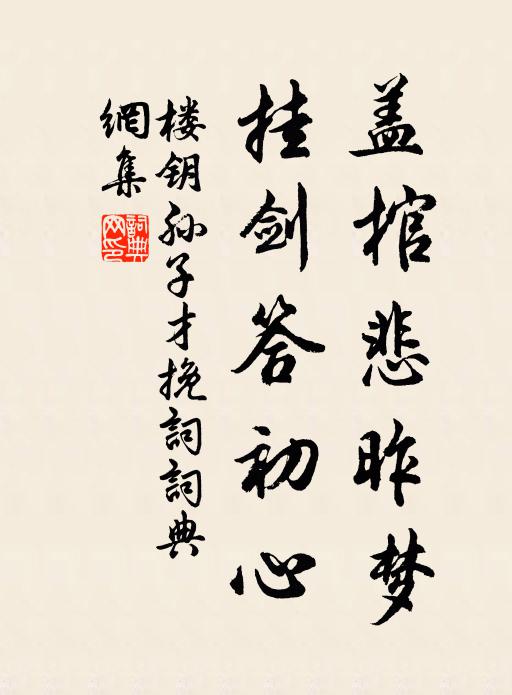 盖棺悲昨梦
挂剑答初心
楼钥孙子才挽詞詞典
網集
詞典网印